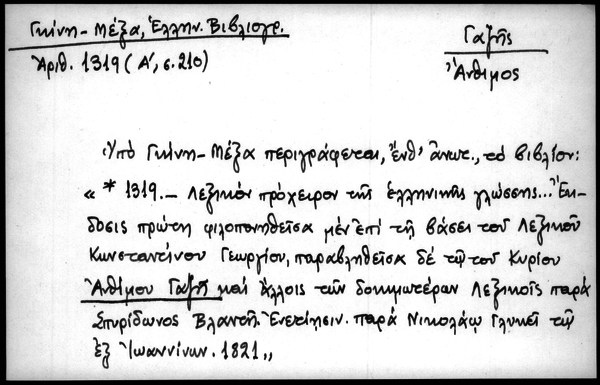 Γκίνη - Μέξα, Ἑλλην. Βιβλιογρ.
Ἀριθ. 1319 (Α', σ. 210)
Γαζῆς
Ἄνθιμος
Ὑπό Γκίνη - Μέξα περιγράφεται, ἔνθ' ἄνωτ., τό βιβλίον:
« * 1319. — Λεξικόν πρόχειρον τῆς ἑλληνικῆς γλώσσης... Ἔκ-
δοσις πρώτη φιλοπονηθεῖσα μέν ἐπί τῇ βάσει τοῦ Λεξικοῦ
Κωνσταντίνου Γεωργίου, παραβληθεῖσα δέ τῷ τοῦ Κυρίου
Ἀνθίμου Γαζῆ καί ἄλλοις τῶν δοκιμωτέρων Λεξικοῖς παρά
Σπυρίδωνος Βλαντῆ. Ἐνετίησιν. παρά Νικολάῳ Γλυκεῖ τῷ
ἐξ Ἰωαννίνων. 1821 „